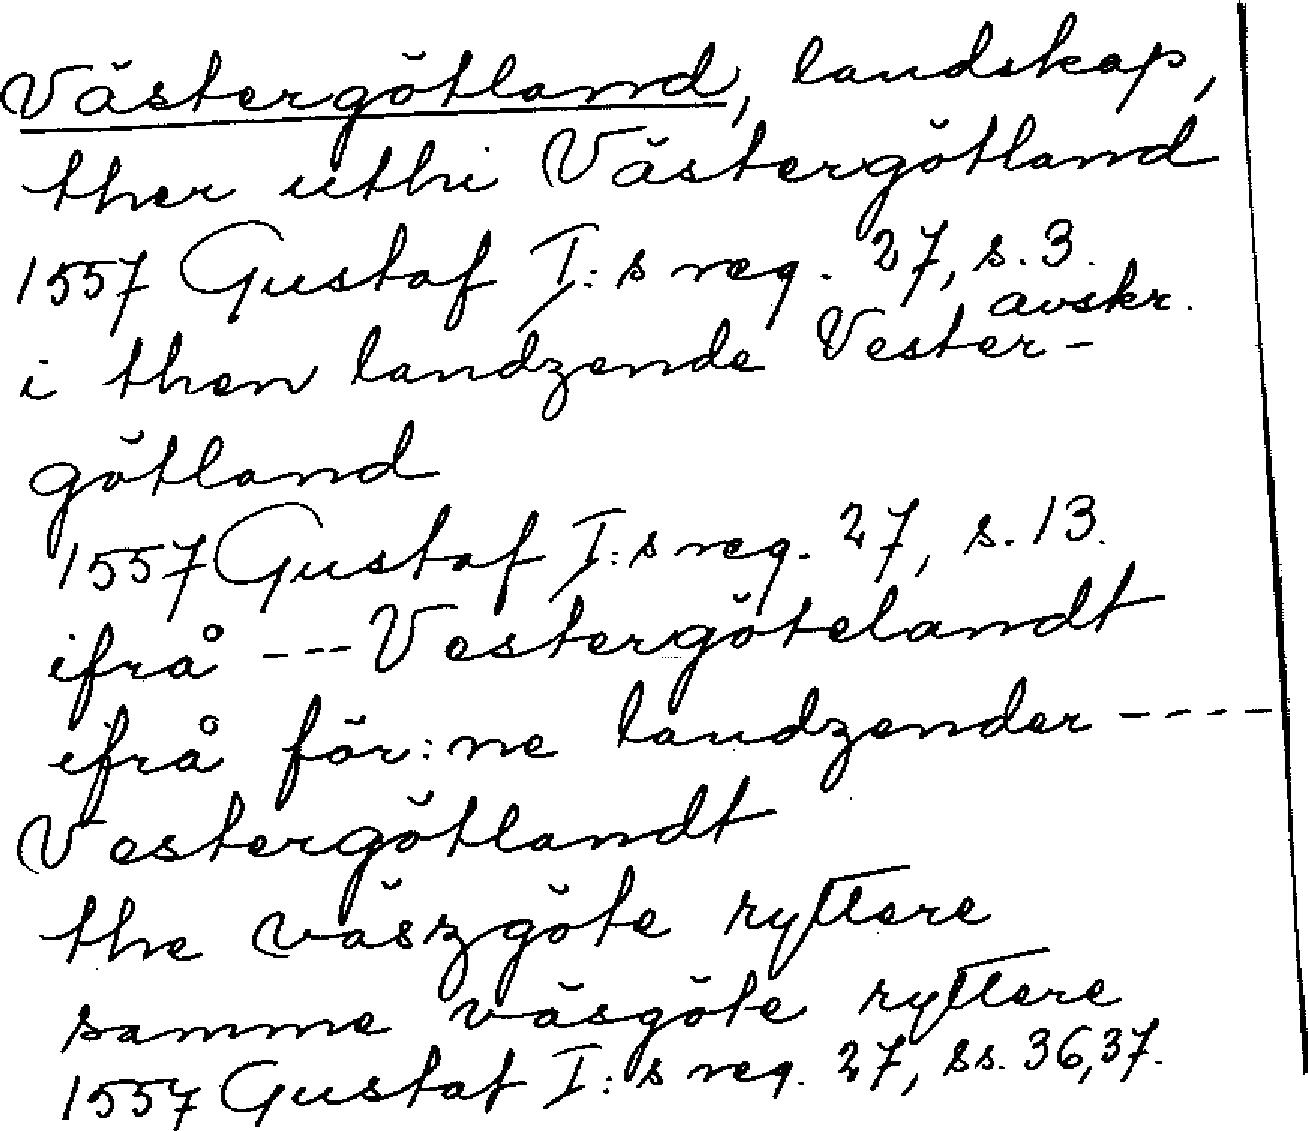 Västergötland, landskap,
ther uthi Västergötland
1557 Gustaf I:s reg. 27, s. 3.
avskr.
i then landzende Vester-
götland
1557 Gustaf I:s reg. 27, s. 13.
ifrå --- Vestergötelandt
ifrå för:ne landzender ----
Vestergötlandt
the väszgöte ryttere
samme väsgöte ryttere
1557 Gustaf I:s reg. 27, ss. 36,37.